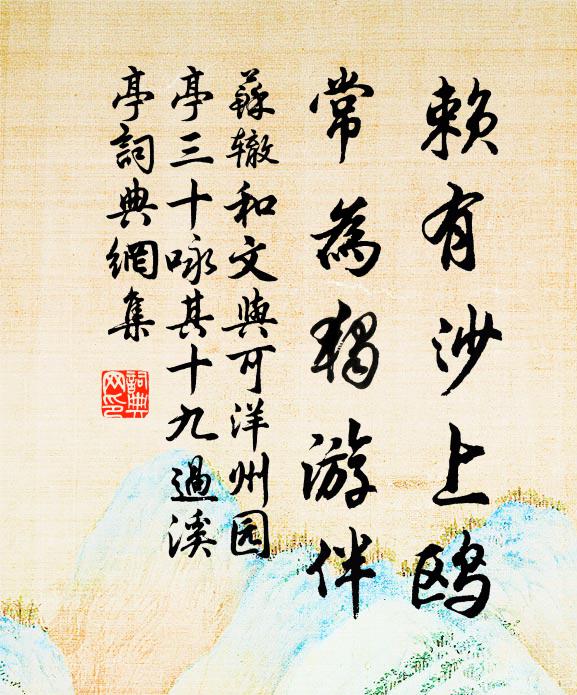 賴有沙上鸥
常為獨游伴
蘇辙和文與可洋州园
亭三十咏其十九過溪
亭詞典網集
詞典
网印